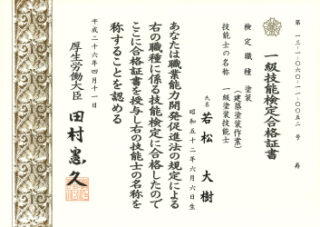 第一三-一-〇六〇-一一-〇〇五二号
一級技能検定合格証書
検定職種 塗装
(建築塗装作業)
技能士の名称 一級塗装技能士
氏名 若松大樹
昭和五十二年六月六日生
あなたは職業能力開発促進法の規定による
右の職種に係る技能検定に合格したので
ここに合格証書を授与し右の技能士の名称を
称することを認める
平成二十六年四月十一日
厚生労働大臣 田村憲久